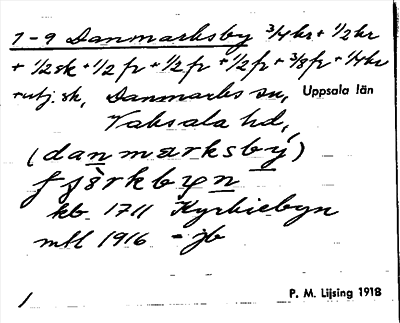 1-9 Danmarksby 3/4 kr + 1/2 kr
+ 1/2 sk + 1/2 fr + 1/2 fr + 1/2 fr + 3/8 fr + 1/4 kr
+ utj. sk, Danmarks sn, Uppsala län
Vaksala hd,
(danmarksby)
kb 1711 Kyrkiebyn
mtl 1916 - jb
1 P. M. Lijsing 1918